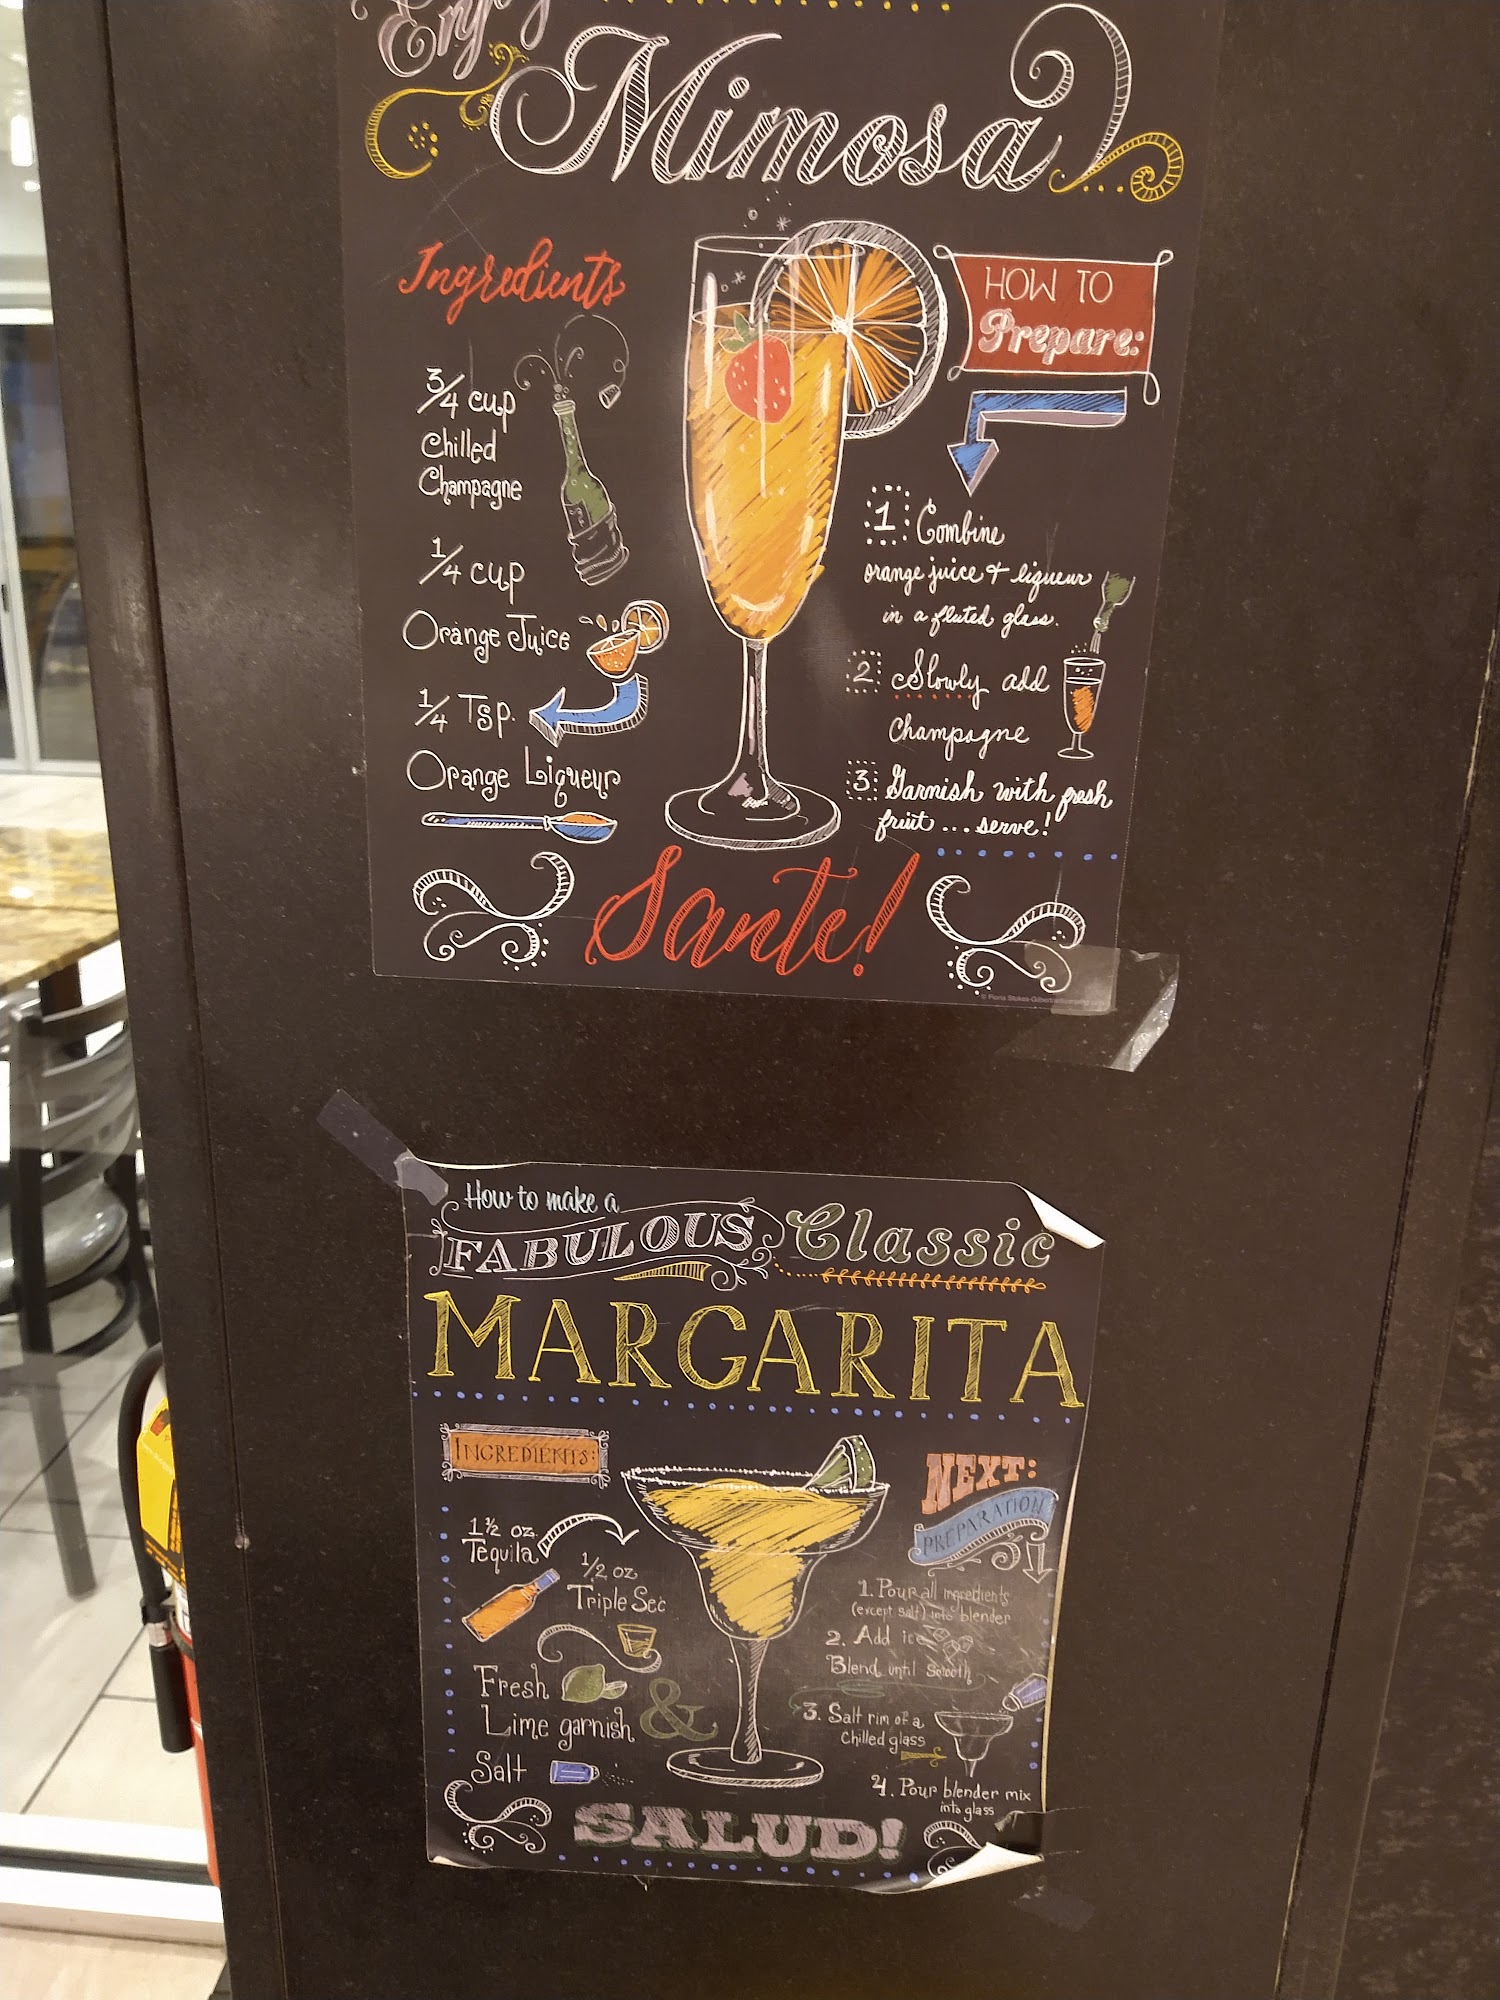 Enjoy
Mimosa
Ingredients
3/4 cup
Chilled
Champagne
1/4 cup
Orange Juice
1/4 Tsp.
Orange Liqueur
HOW TO
Prepare:
1 Combine
orange juice + liqueur
in a fluted glass.
2 Slowly add
Champagne
3 Garnish with fresh
fruit ... serve!
Sante!
© Fiona Stokes-Gilbert
How to make a
FABULOUS Classic
MARGARITA
INGREDIENTS:
1 1/2 oz.
Tequila
1/2 oz
Triple Sec
Fresh
Lime garnish
&
Salt
NEXT:
PREPARATION
1. Pour all ingredients
(except salt) into blender
2. Add ice
Blend until smooth
3. Salt rim of a
Chilled glass
4. Pour blender mix
into glass
SALUD!